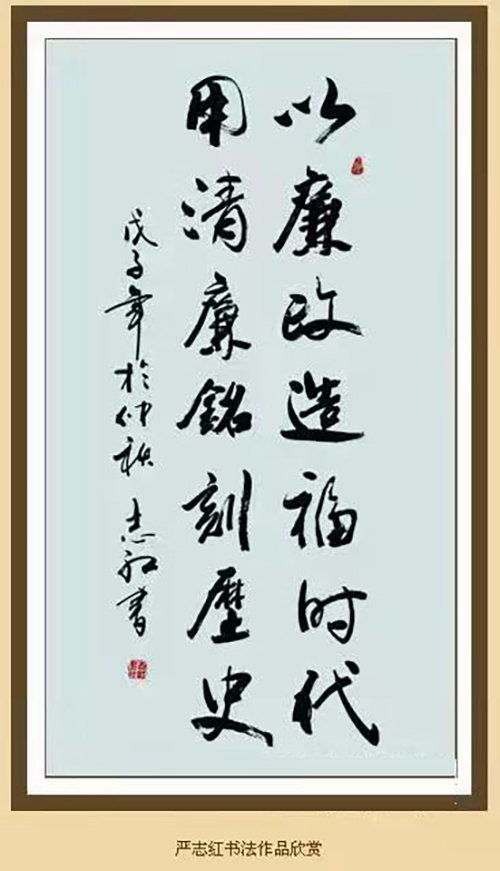 以廉政造福时代
用清廉銘刻歷史
戊子年於仲秋 志红書
严志红书法作品欣赏